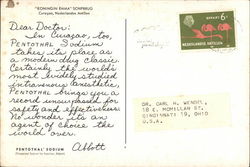 "KONINGIN EMMA" SCHIPBRUG
Curaçao, Nederlandse Antillen
Dear Doctor:
In Curaçao, too,
PENTOTHAL Sodium
takes its place as
a modern drug classic.
Certainly the world's
most widely studied
intravenous anesthetic,
PENTOTHAL brings you a
record unsurpassed for
safety and effectiveness.
No wonder it's an
agent of choice the
world over.
Abbott
PENTOTHAL SODIUM
6c
NEDERLANDSE ANTILLEN
DR. CARL H. WENDEL
18 E. MCMILLAN ST.
CINCINNATI 19, OHIO
U.S.A.